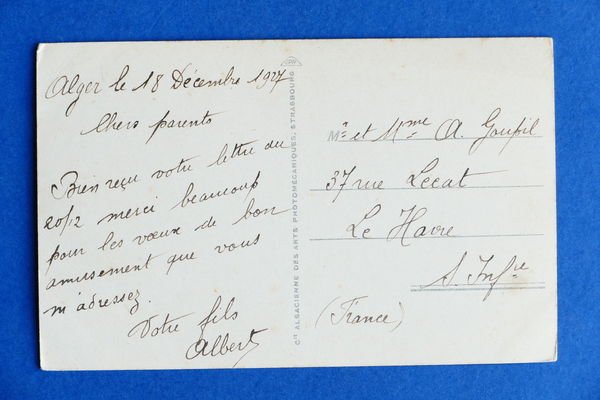 Alger le 18 Décembre 1927
Chers parents
Bien reçu votre lettre du
20/12 merci beaucoup
pour les vœux de bon
amusement que vous
m'adressez.
Votre fils
Albert
Cie ALSACIENNE DES ARTS PHOTOMÉCANIQUES, STRASBOURG
Mr et Mme A. Goupil
37 rue Lecat
Le Havre
S. Infre
(France)